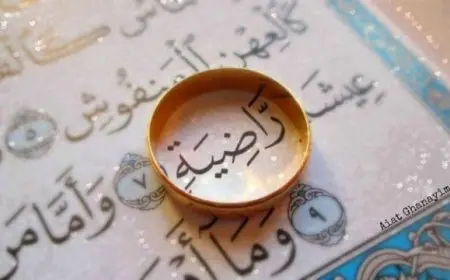 كَٱلْعِهْنِ ٱلْمَنفُوشِ ٥
عِيشَةٍ رَّاضِيَةٍ ٧ وَأَمَّا مَنْ
٩ وَمَآ
Aiat Ghanayim